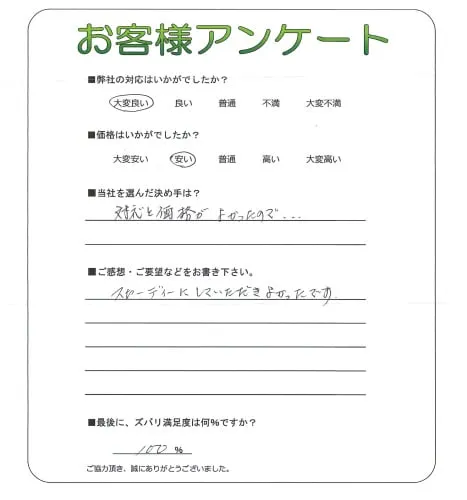 お客様アンケート
■弊社の対応はいかがでしたか？
大変良い 良い 普通 不満 大変不満
■価格はいかがでしたか？
大変安い 安い 普通 高い 大変高い
■当社を選んだ決め手は？
対応と価格がよかったので...
■ご感想・ご要望などをお書き下さい。
スピーディーにしていただきよかったです.
■最後に、ズバリ満足度は何%ですか？
100 %
ご協力頂き、誠にありがとうございました。